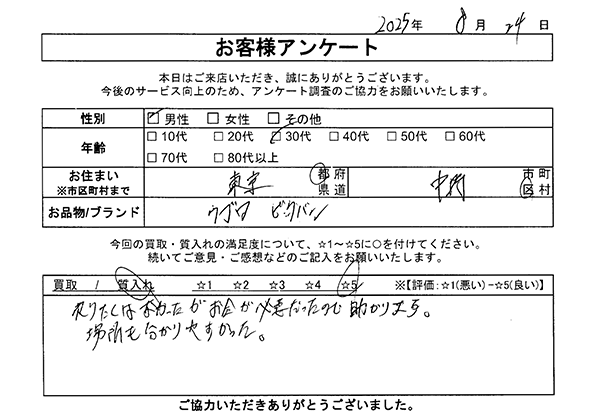 2025年 8月 24日
お客様アンケート
本日はご来店いただき、誠にありがとうございます。
今後のサービス向上のため、アンケート調査のご協力をお願いいたします。
性別 ☑ 男性 ☐ 女性 ☐ その他
年齢 ☐ 10代 ☐ 20代 ☑ 30代 ☐ 40代 ☐ 50代 ☐ 60代
☐ 70代 ☐ 80代以上
お住まい 東京 都府 市町
※市区町村まで 県道 区村
お品物/ブランド ウブロ ビックバン
今回の買取・質入れの満足度について、☆1～☆5に○を付けてください。
続いてご意見・ご感想などのご記入をお願いいたします。
買取 / 質入れ ☆1 ☆2 ☆3 ☆4 ☆5 ※【評価:☆1(悪い)-☆5(良い)】
売りたくはなかったがお金が必要だったので助かります。
場所も分かりやすかった。
ご協力いただきありがとうございました。